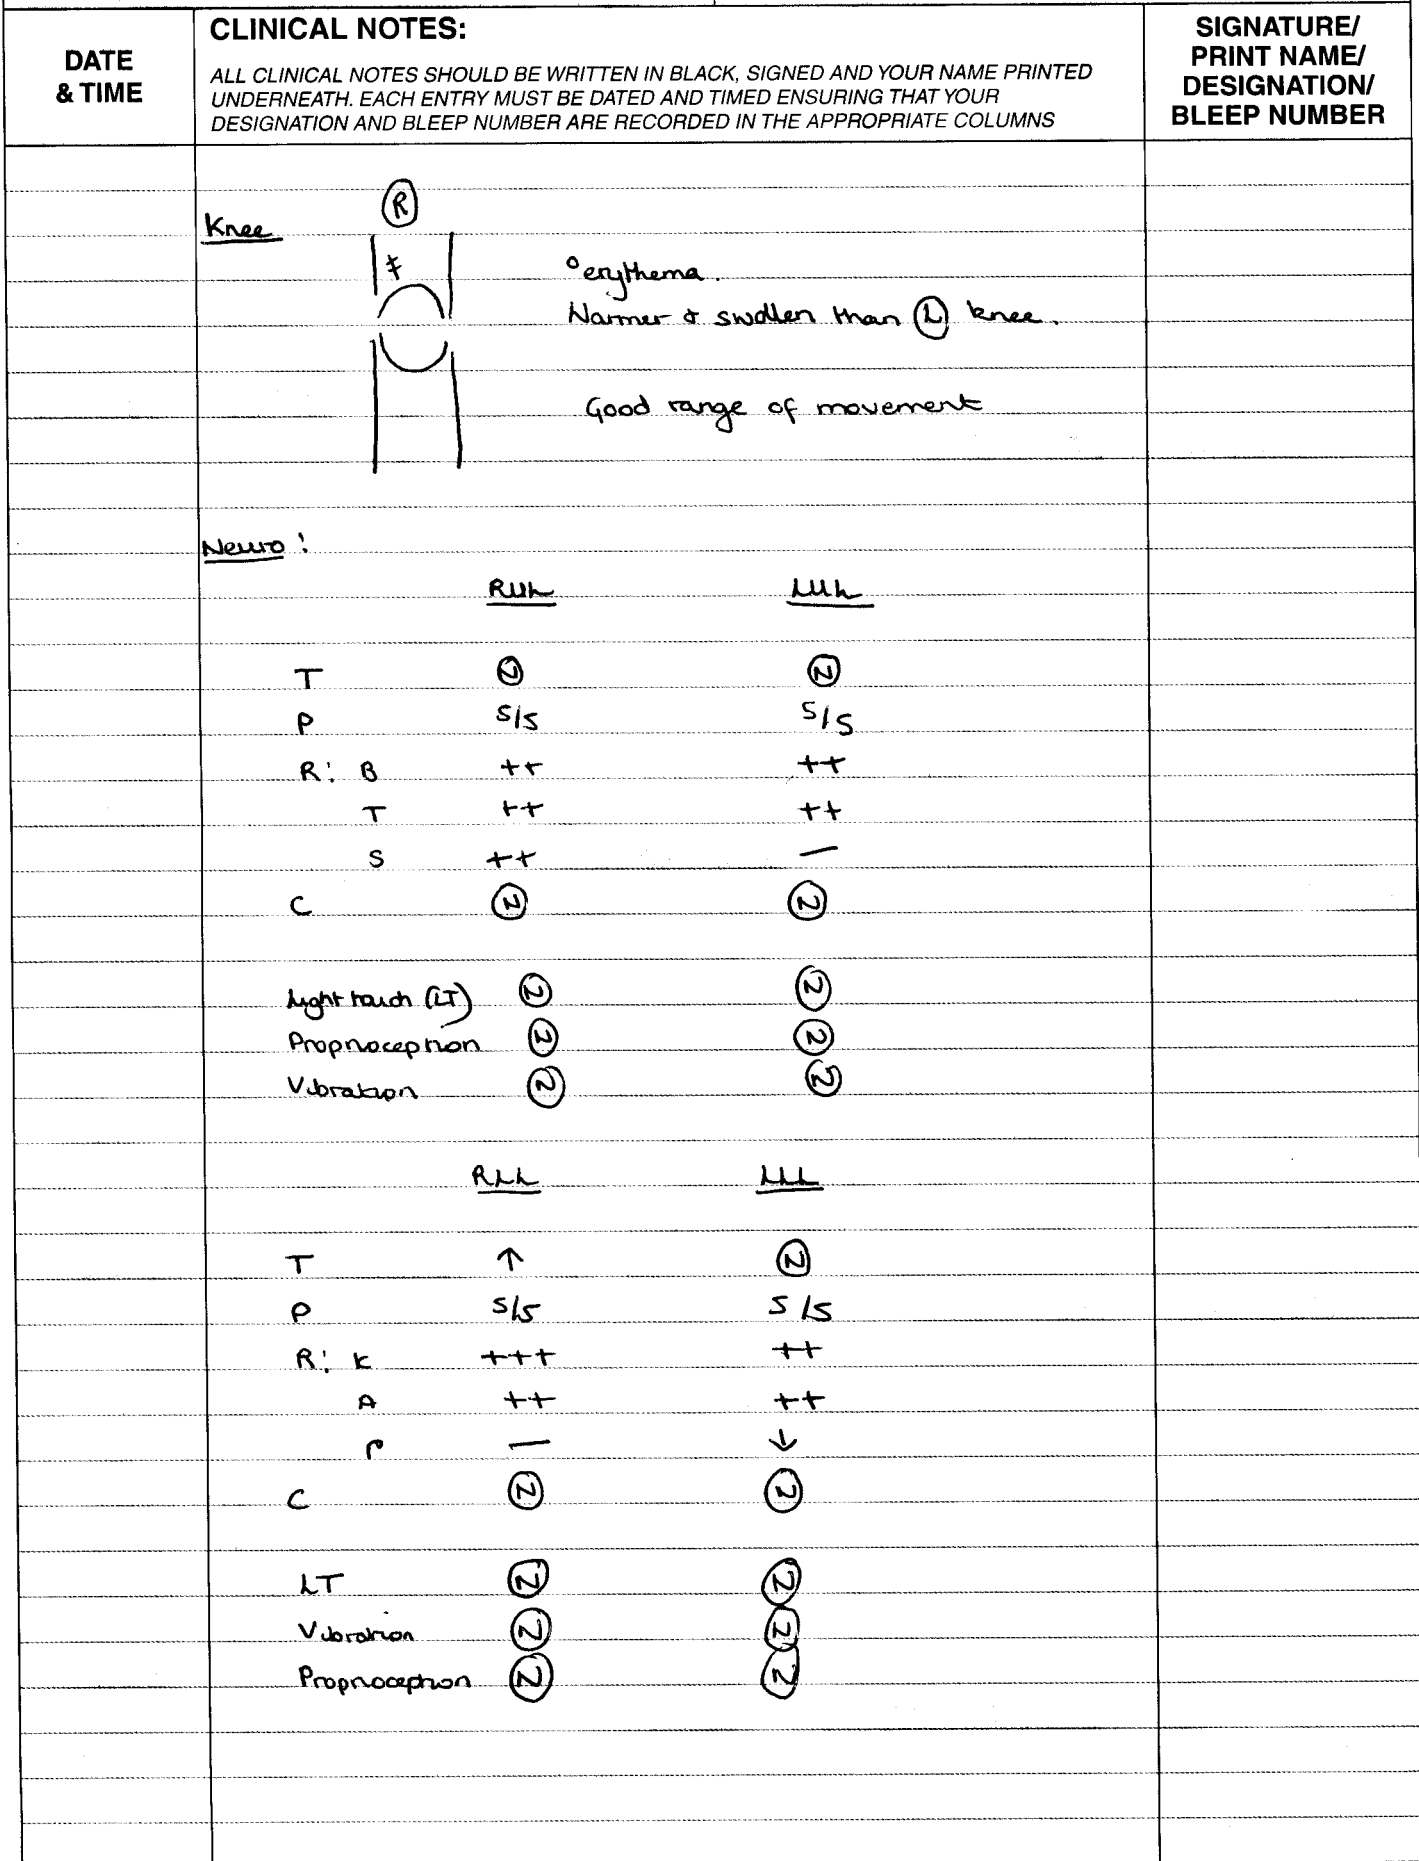 DATE & TIME
CLINICAL NOTES:
ALL CLINICAL NOTES SHOULD BE WRITTEN IN BLACK, SIGNED AND YOUR NAME PRINTED
UNDERNEATH. EACH ENTRY MUST BE DATED AND TIMED ENSURING THAT YOUR
DESIGNATION AND BLEEP NUMBER ARE RECORDED IN THE APPROPRIATE COLUMNS
SIGNATURE/
PRINT NAME/
DESIGNATION/
BLEEP NUMBER
Knee Ⓡ
°erythema.
Warmer & swollen than Ⓛ knee.
Good range of movement
Neuro:
RUL LUL
T Ⓝ Ⓝ
P 5/5 5/5
R: B ++ ++
T ++ ++
S ++ —
C Ⓝ Ⓝ
Light touch (LT) Ⓝ Ⓝ
Proprioception Ⓝ Ⓝ
Vibration Ⓝ Ⓝ
RLL LLL
T ↑ Ⓝ
P 5/5 5/5
R: K +++ ++
A ++ ++
P — ↓
C Ⓝ Ⓝ
LT Ⓝ Ⓝ
Vibration Ⓝ Ⓝ
Proprioception Ⓝ Ⓝ